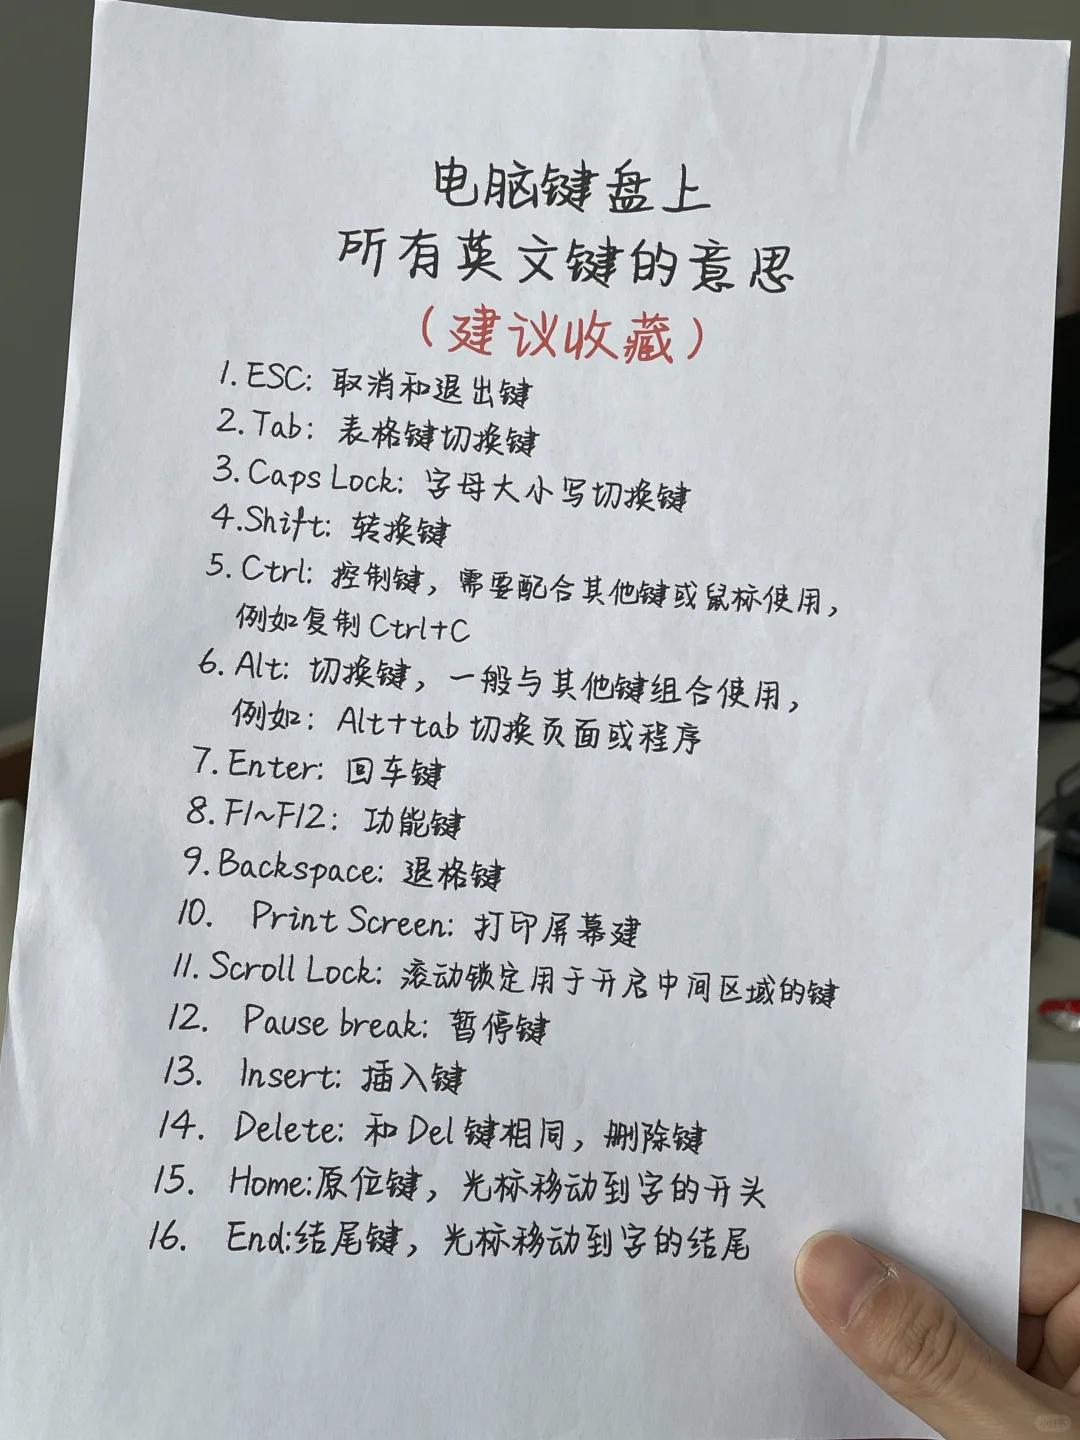 电脑键盘上
所有英文键的意思
（建议收藏）
1. ESC: 取消和退出键
2. Tab: 表格键切换键
3. Caps Lock: 字母大小写切换键
4. Shift: 转换键
5. Ctrl: 控制键，需要配合其他键或鼠标使用，
例如复制 Ctrl+C
6. Alt: 切换键，一般与其他键组合使用，
例如：Alt+tab 切换页面或程序
7. Enter: 回车键
8. F1~F12: 功能键
9. Backspace: 退格键
10. Print Screen: 打印屏幕建
11. Scroll Lock: 滚动锁定用于开启中间区域的键
12. Pause break: 暂停键
13. Insert: 插入键
14. Delete: 和 Del 键相同，删除键
15. Home:原位键，光标移动到字的开头
16. End:结尾键，光标移动到字的结尾